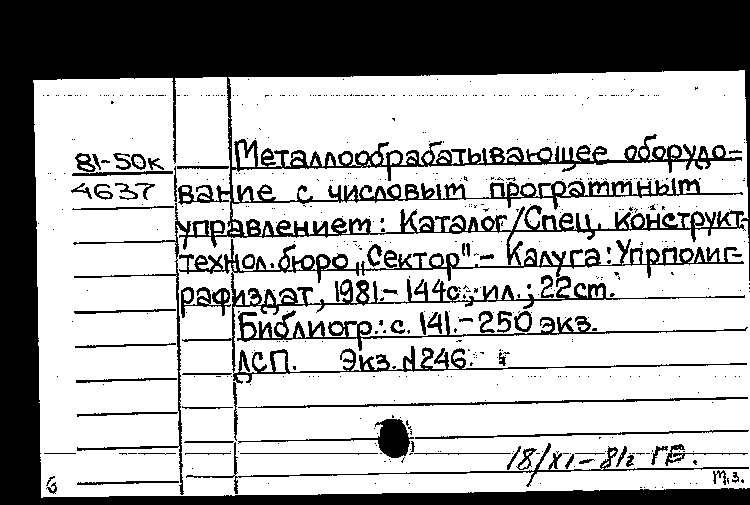 81-50к Металлообрабатывающее оборудо=
4637 вание с числовым программным
управлением: Каталог/Спец. конструкт.-
технол. бюро „Сектор".- Калуга: Упрполиг-
рафиздат, 1981.- 144с.; ил.; 22см.
Библиогр.: с. 141.- 250 экз.
ДСП. Экз. №246.
18/XI-81г
6 м.з.